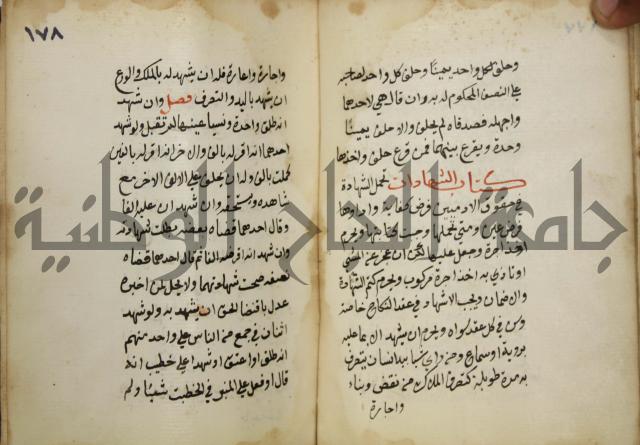 وحلف لكل واحد يمينًا وحلف كل واحد لصاحبه
على النصف المحكوم له به وان قال هي لاحدهما
واجهله فصدقاه لم يحلف والا حلف يمينًا
وحدة ويقرع بينهما فمن قرع حلف واخذها
كتاب الشهادات تحمل الشهادة
في حقوق الادميين فرض كفاية واداوها
فرض عين ومتى تحملها وجبت كتابتها ويحرم
اخذ اجرة وجعل عليها لكن ان عجز عن المشي
او تاذى به اخذ اجرة مركوب ويحرم كتم الشهادة
ولا ضمان ويجب الاشهاد في عقد النكاح خاصة
وسن في كل عقد سواه ويحرم ان يشهد الا بما علمه
بروية او سماع ومن راى شيا بيد انسان يتصرف
به مدة طويلة كتصرف الملاك من نقض وبناء
واجارة
١٧٨
واجارة واعارة فله ان يشهد له بالملك والورع
ان يشهد باليد والتصرف فصل وان شهدا
انه طلق واحدة ونسيا عينها لم تقبل ولو شهد
احدهما انه اقر له بالف والاخر انه اقر له بالفين
كملت بالف وله ان يحلف على الالف الاخر مع
شاهده ويستحقه وان شهدا ان عليه الفا
وقال احدهما قضاه بعضه بطلت شهادته
وان شهدا انه اقرضه الفا ثم قال احدهما قضاه
نصفه صحت شهادتهما ولا يحل لمن اخبره
عدل باقتضا الحق ان يشهد به ولو شهد
اثنان في جمع من الناس على واحد منهم
انه طلق او اعتق او شهدا على خطيب انه
قال او فعل على المنبر في الخطبة شيئا ولم
جامعة النجاح الوطنية